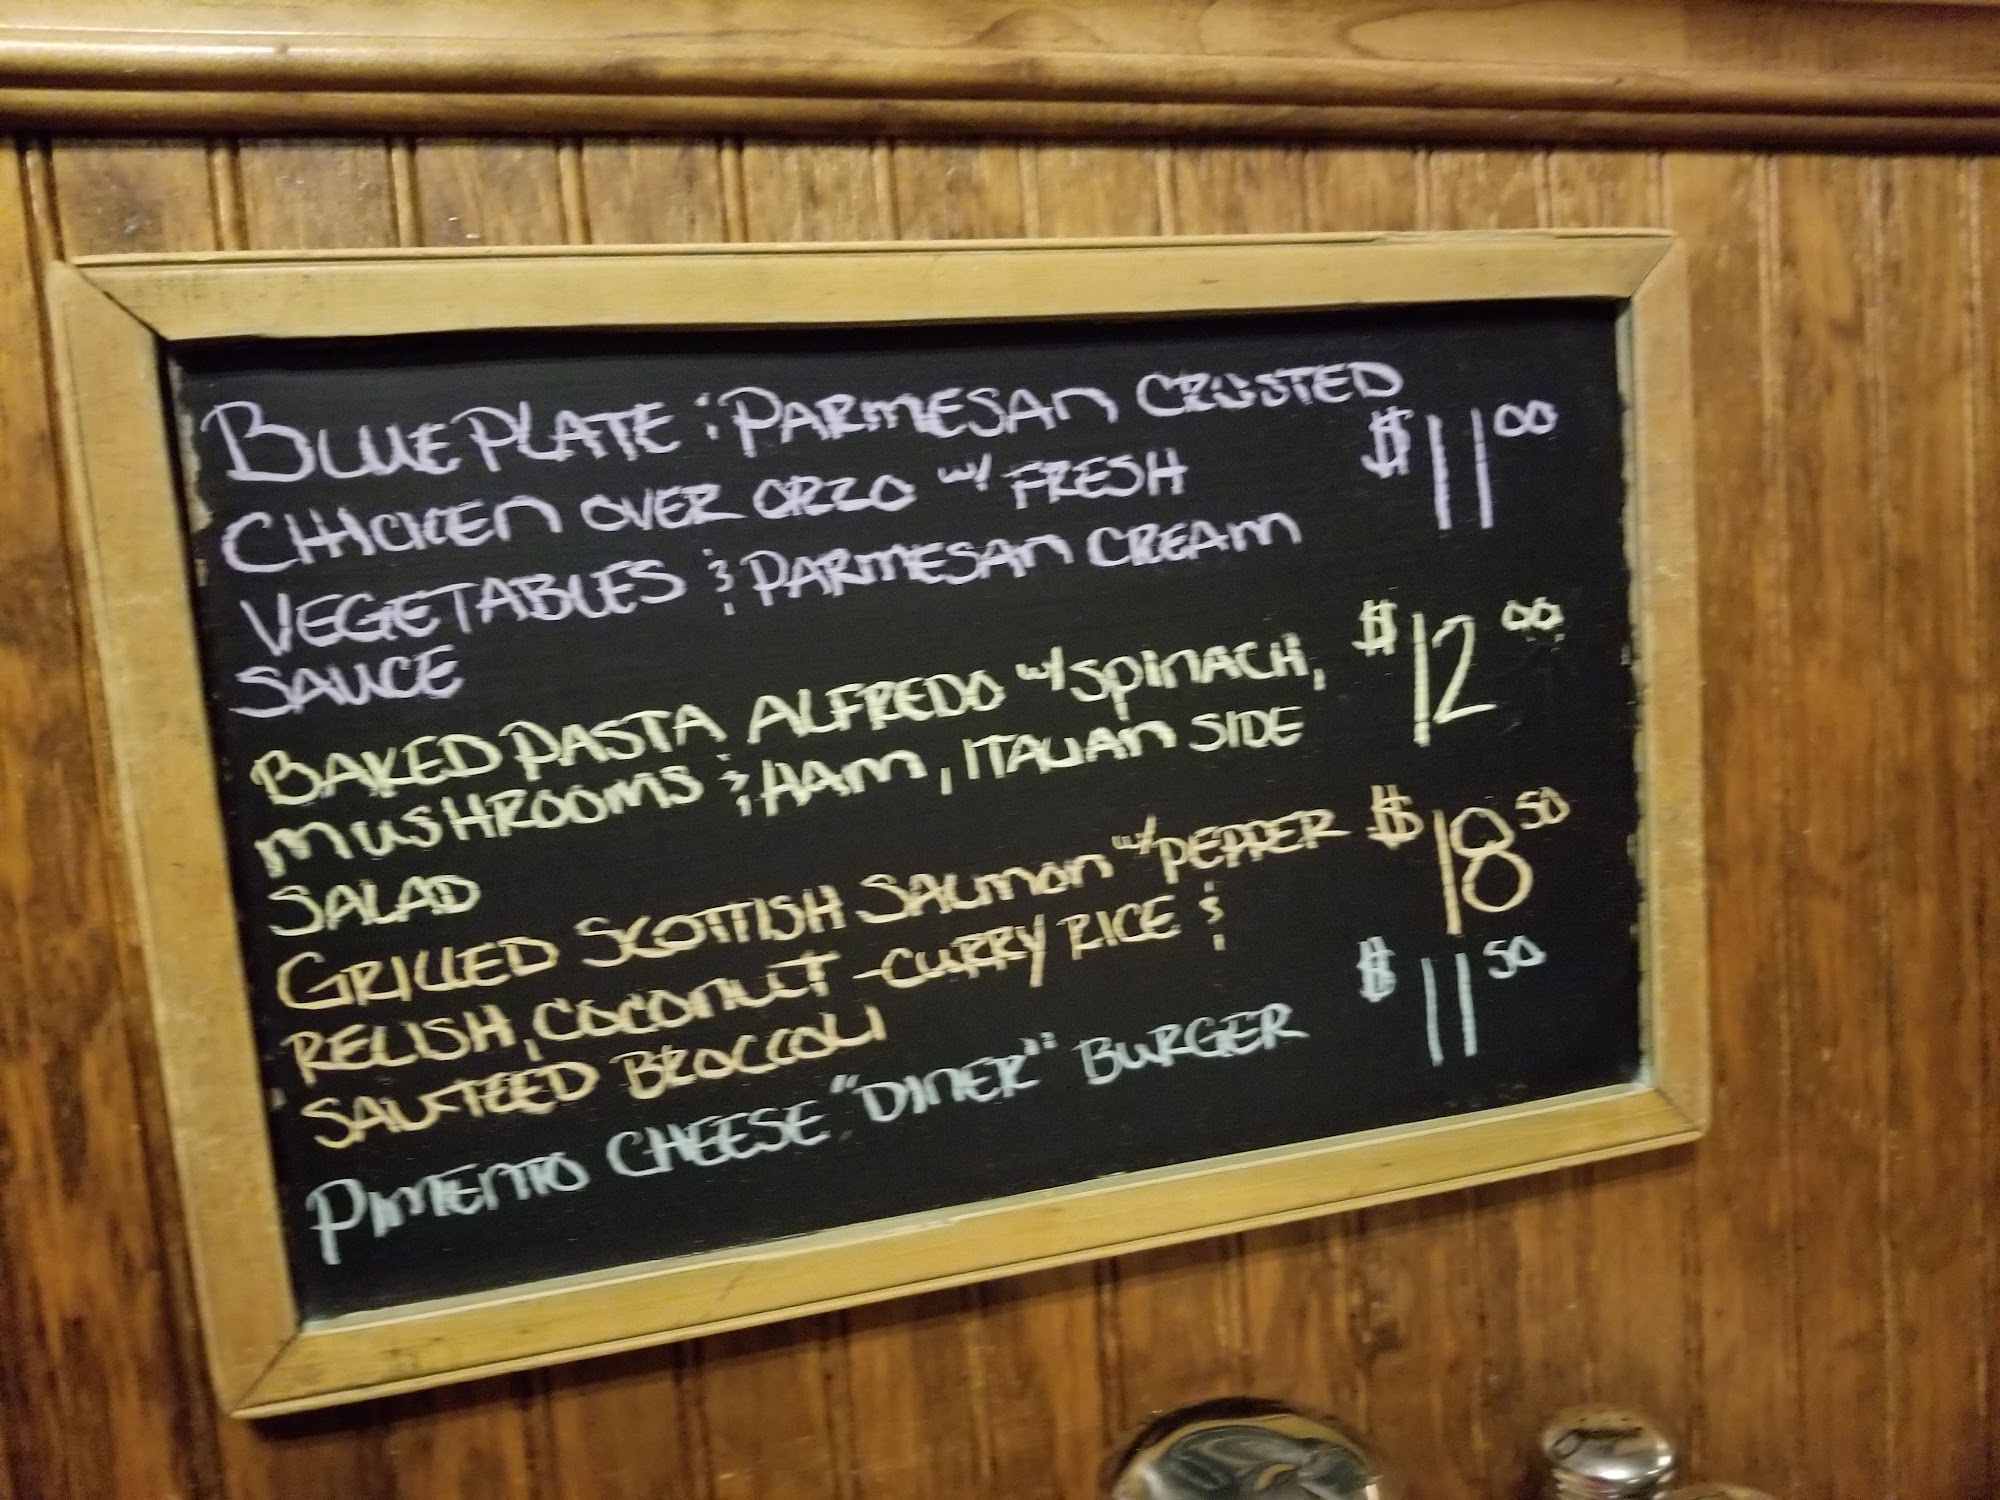 BLUE PLATE: PARMESAN CRUSTED
CHICKEN OVER ORZO w/ FRESH $11.00
VEGETABLES & PARMESAN CREAM
SAUCE
BAKED PASTA ALFREDO w/ SPINACH, $12.00
MUSHROOMS & HAM, ITALIAN SIDE
SALAD
GRILLED SCOTTISH SALMON w/ PEPPER $18.50
RELISH, COCONUT-CURRY RICE &
SAUTEED BROCCOLI
PIMENTO CHEESE "DINER" BURGER $11.50